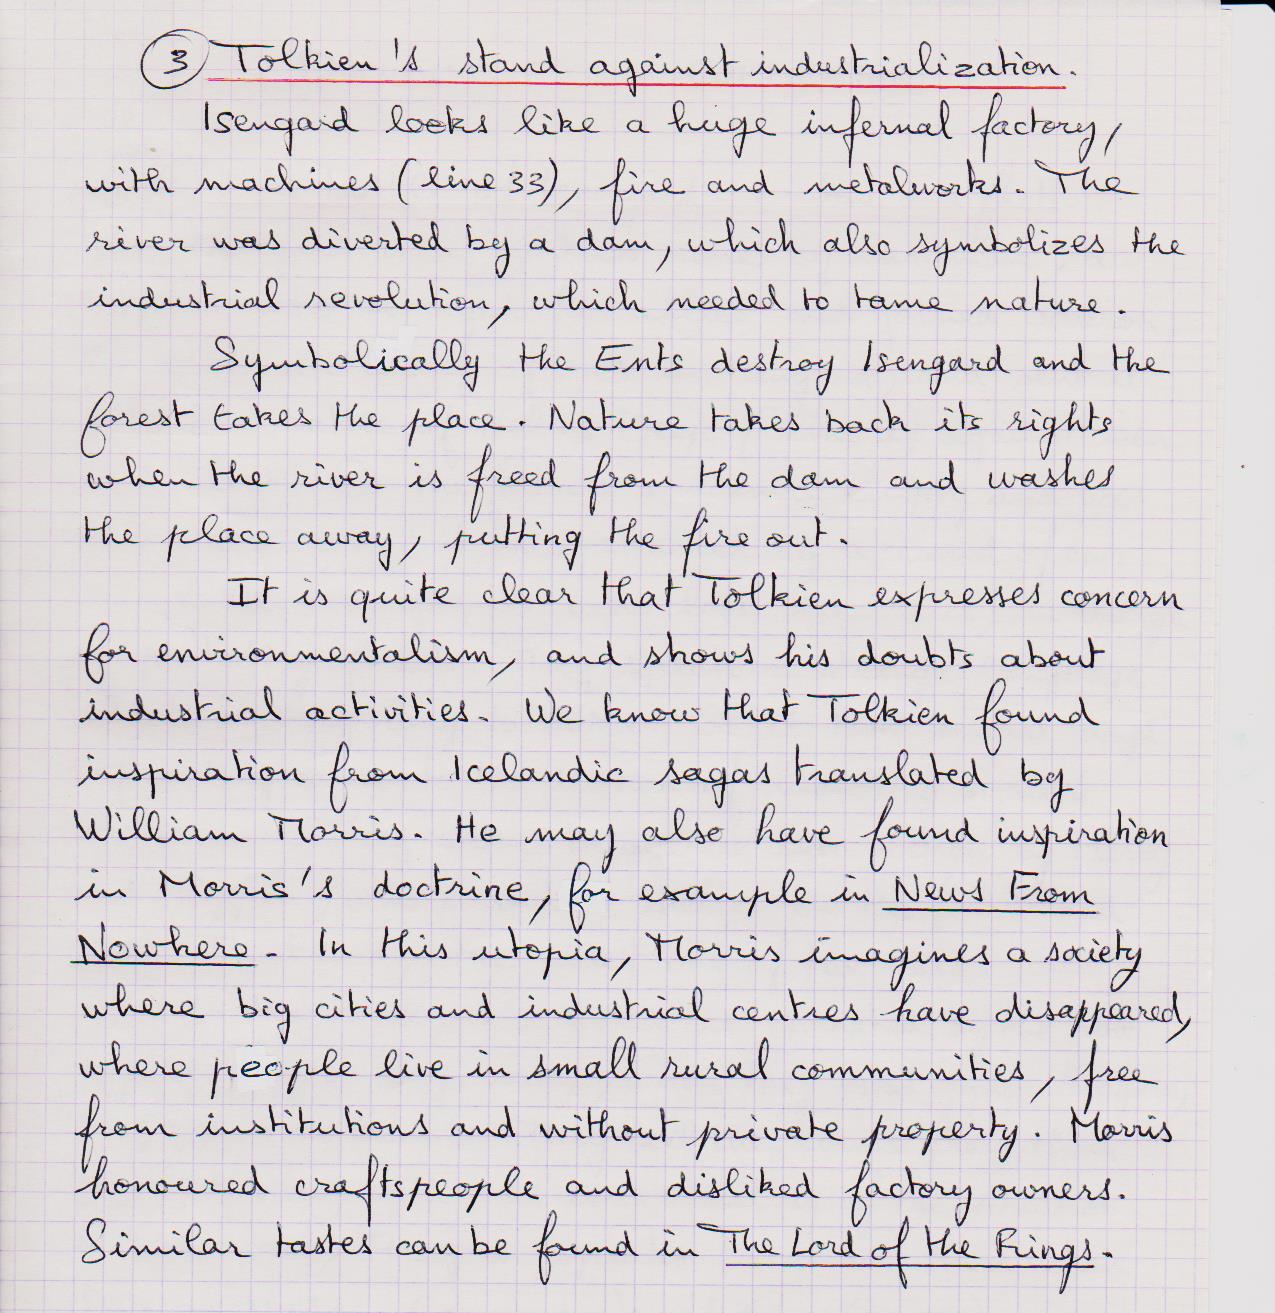 3 Tolkien's stand against industrialization.
Isengard looks like a huge infernal factory,
with machines (line 33), fire and metalworks. The
river was diverted by a dam, which also symbolizes the
industrial revolution, which needed to tame nature.
Symbolically the Ents destroy Isengard and the
forest takes the place. Nature takes back its rights
when the river is freed from the dam and washes
the place away, putting the fire out.
It is quite clear that Tolkien expresses concern
for environmentalism, and shows his doubts about
industrial activities. We know that Tolkien found
inspiration from Icelandic sagas translated by
William Morris. He may also have found inspiration
in Morris's doctrine, for example in News From
Nowhere. In this utopia, Morris imagines a society
where big cities and industrial centres have disappeared,
where people live in small rural communities, free
from institutions and without private property. Morris
honoured craftspeople and disliked factory owners.
Similar tastes can be found in The Lord of the Rings.